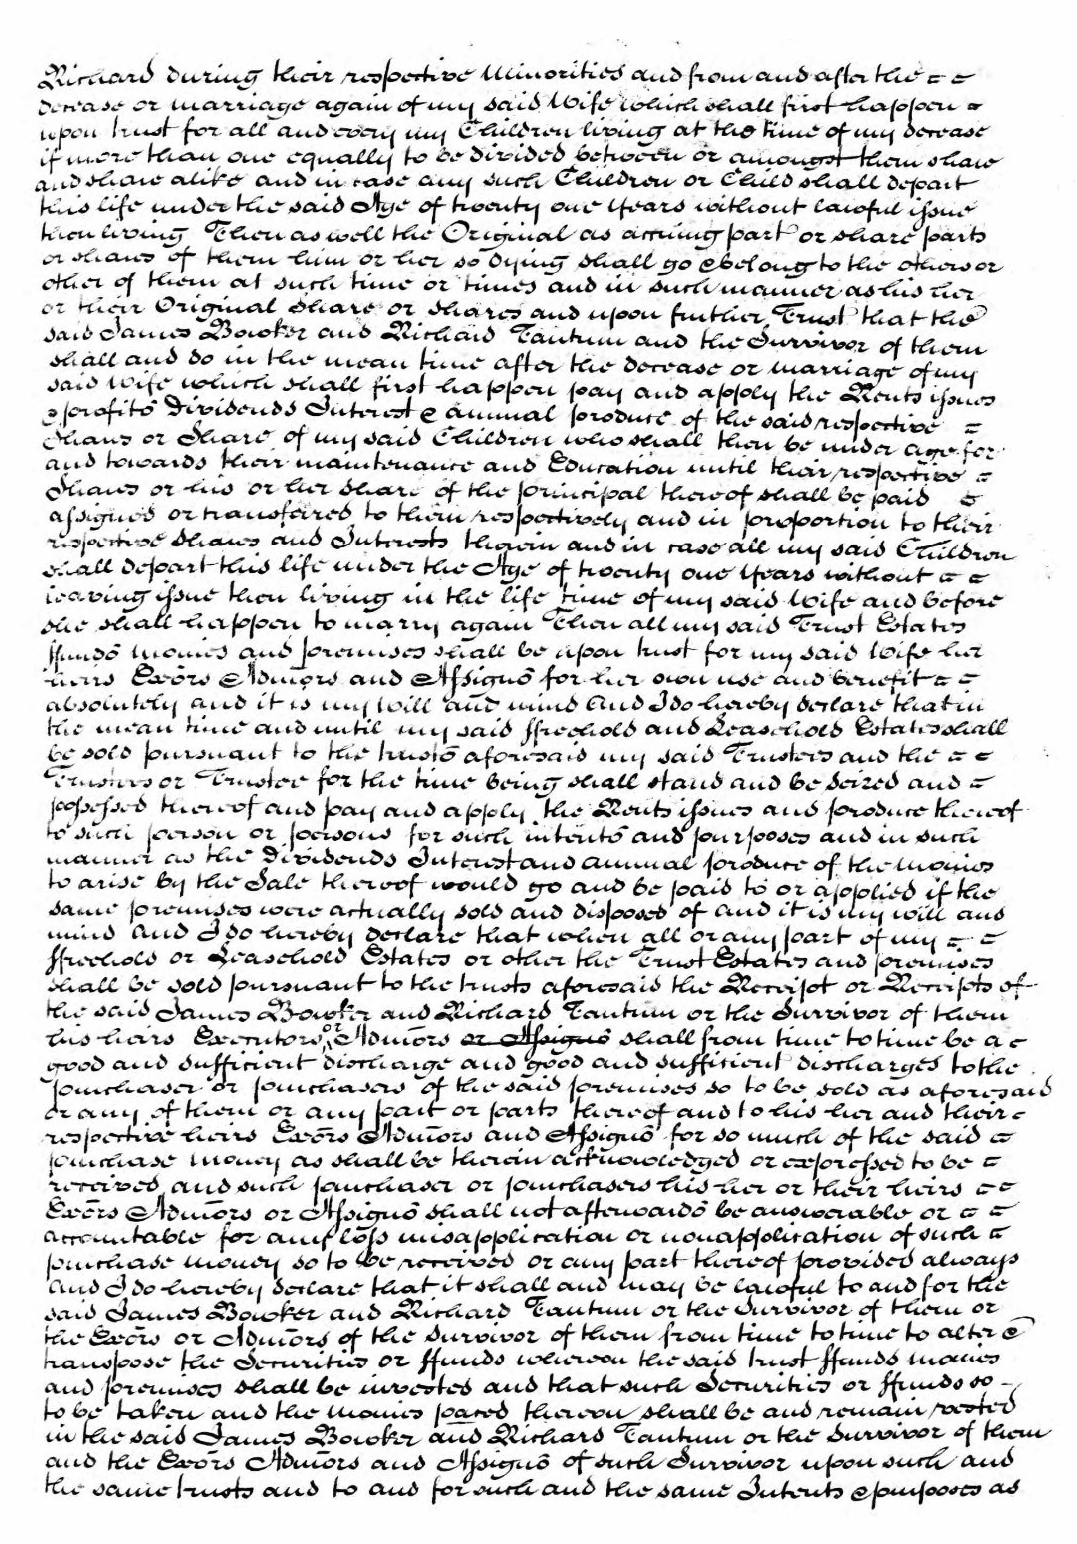 Richard during their respective Minorities and from and after the = =
decease or marriage again of my said Wife which shall first happen =
upon trust for all and every my Children living at the time of my decease
if more than one equally to be divided between or amongst them share
and share alike and in case any such Children or Child shall depart
this life under the said Age of twenty one Years without lawful issue
then living Then as well the Original as accruing part or share parts
or shares of them him or her so dying shall go & belong to the others or
other of them at such time or times and in such manner as his her
or their Original share or shares and upon further Trust that the
said James Bowker and Richard Tantum and the Survivor of them
shall and do in the mean time after the decease or marriage of my
said Wife which shall first happen pay and apply the Rents issues
& profits Dividends Interest & annual produce of the said respective =
Shares or Share of my said Children who shall then be under age for
and towards their maintenance and Education until their respective =
Shares or his or her share of the principal thereof shall be paid =
assigned or transferred to them respectively and in proportion to their
respective Shares and Interests therein and in case all my said Children
shall depart this life under the Age of twenty one Years without = =
leaving issue then living in the life time of my said Wife and before
she shall happen to marry again Then all my said Trust Estates
ffunds Monies and premises shall be upon trust for my said Wife her
heirs Exōrs Admōrs and Assigns for her own use and benefit = =
absolutely and it is my Will and mind And I do hereby declare that in
the mean time and until my said ffreehold and Leasehold Estates shall
be sold pursuant to the trusts aforesaid my said Trustees and the = =
Trustees or Trustee for the time being shall stand and be seized and =
possessed thereof and pay and apply the Rents issues and produce thereof
to such person or persons for such intents and purposes and in such
manner as the Dividends Interest and annual produce of the Monies
to arise by the Sale thereof would go and be paid to or applied if the
same premises were actually sold and disposed of and it is my will and
mind and I do hereby declare that when all or any part of my = =
ffreehold or Leasehold Estates or other the Trust Estates and premises
shall be sold pursuant to the trusts aforesaid the Receipt or Receipts of
the said James Bowker and Richard Tantum or the Survivor of them
his heirs Executors or Admōrs or Assigns shall from time to time be a =
good and sufficient discharge and good and sufficient discharges to the
purchaser or purchasers of the said premises so to be sold as aforesaid
or any of them or any part or parts thereof and to his her and their =
respective heirs Exōrs Admōrs and Assigns for so much of the said =
purchase Money as shall be therein acknowledged or expressed to be =
received and such purchaser or purchasers his her or their heirs = =
Exōrs Admōrs or Assigns shall not afterwards be answerable or = =
accountable for any loss misapplication or nonapplication of such =
purchase money so to be received or any part thereof provided always
and I do hereby declare that it shall and may be lawful to and for the
said James Bowker and Richard Tantum or the Survivor of them or
the Exōrs or Admōrs of the survivor of them from time to time to alter &
transpose the Securities or ffunds whereon the said trust ffunds monies
and premises shall be invested and that such Securities or ffunds so -
to be taken and the Monies placed thereon shall be and remain vested
in the said James Bowker and Richard Tantum or the Survivor of them
and the Exōrs Admōrs and Assigns of such Survivor upon such and
the same trusts and to and for such and the same Intents & purposes as